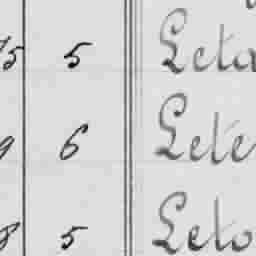 75 5 Leta
9 6 Lete
8 5 Leto